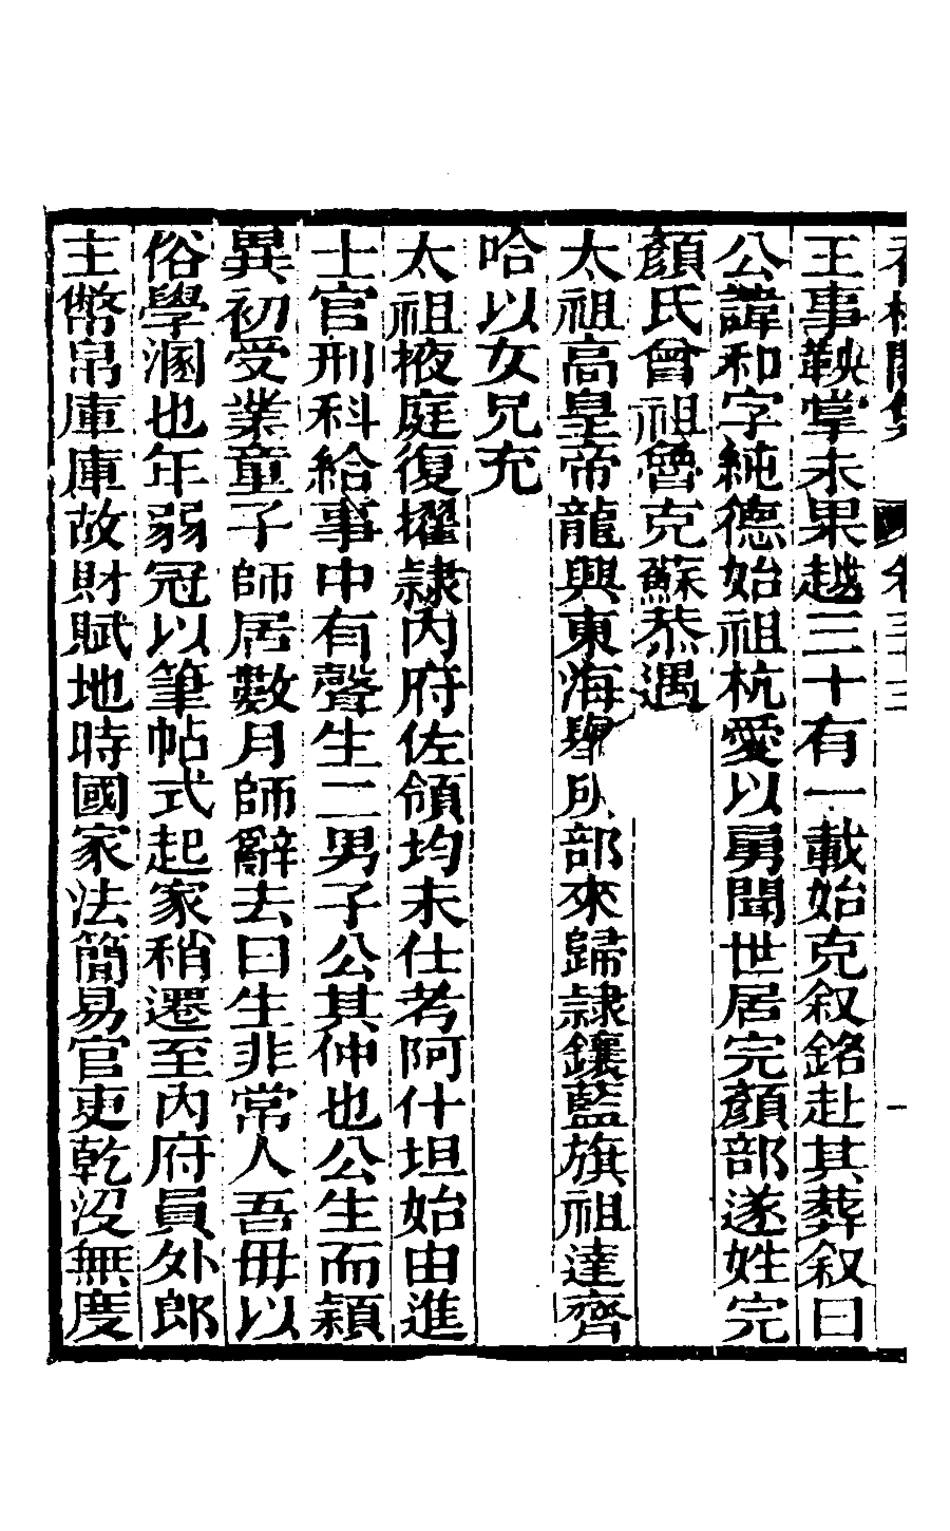 王事鞅掌未果越三十有一載始克叙銘赴其葬叙曰
公諱和字純德始祖杭愛以勇聞世居完顏部遂姓完
顏氏曾祖魯克蘇恭遇
太祖高皇帝龍興東海部來歸隷鑲藍旗祖達齊
哈以女兄充
太祖掖庭復擢隷內府佐領均未仕考阿什坦始由進
士官刑科給事中有聲生二男子公其仲也公生而穎
異初受業童子師居數月師辭去曰生非常人吾毋以
俗學溷也年弱冠以筆帖式起家稍遷至內府員外郎
主幣帛庫庫故財賦地時國家法簡易官吏乾沒無度